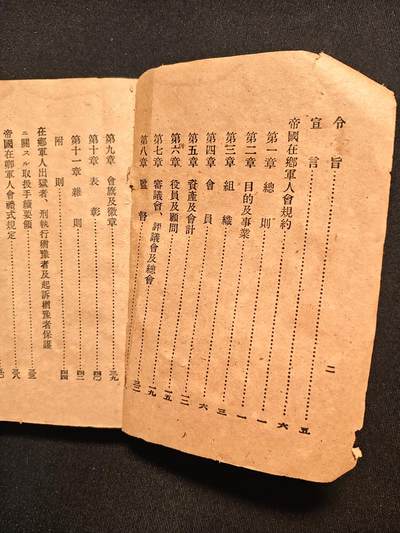 令旨………二
宣言………五
帝國在鄕軍人會規約………六
第一章 總則………一
第二章 目的及事業………一
第三章 組織………三
第四章 會員………六
第五章 資產及會計………一二
第六章 役員及顧問………一五
第七章 審議會、評議會及總會………一九
第八章 監督………
第九章 會旗及徽章………
第十章 表彰………
第十一章 雜則………四二
附則………四四
在鄕軍人出獄者、刑執行猶豫者及起訴猶豫者保護
ニ關スル取扱手續要領………
帝國在鄕軍人會禮式規定………